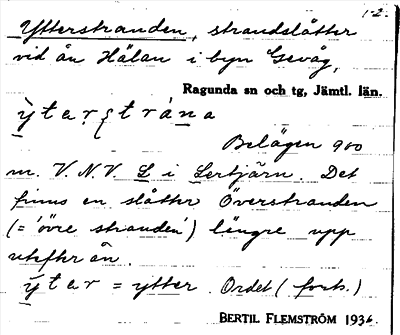 1-2.
Ytterstranden, strandslåtter
vid ån Hälan i byn Gevåg,
Ragunda sn och tg, Jämtl. län.
ỳtaṛʂtrána
Belägen 900
m. V.N.V. L i Lertjärn. Det
finns en slåtter Överstranden
(= 'övre stranden') längre upp
utefter ån.
ỳtar = ytter. Ordet (forts.)
BERTIL FLEMSTRÖM 1936.